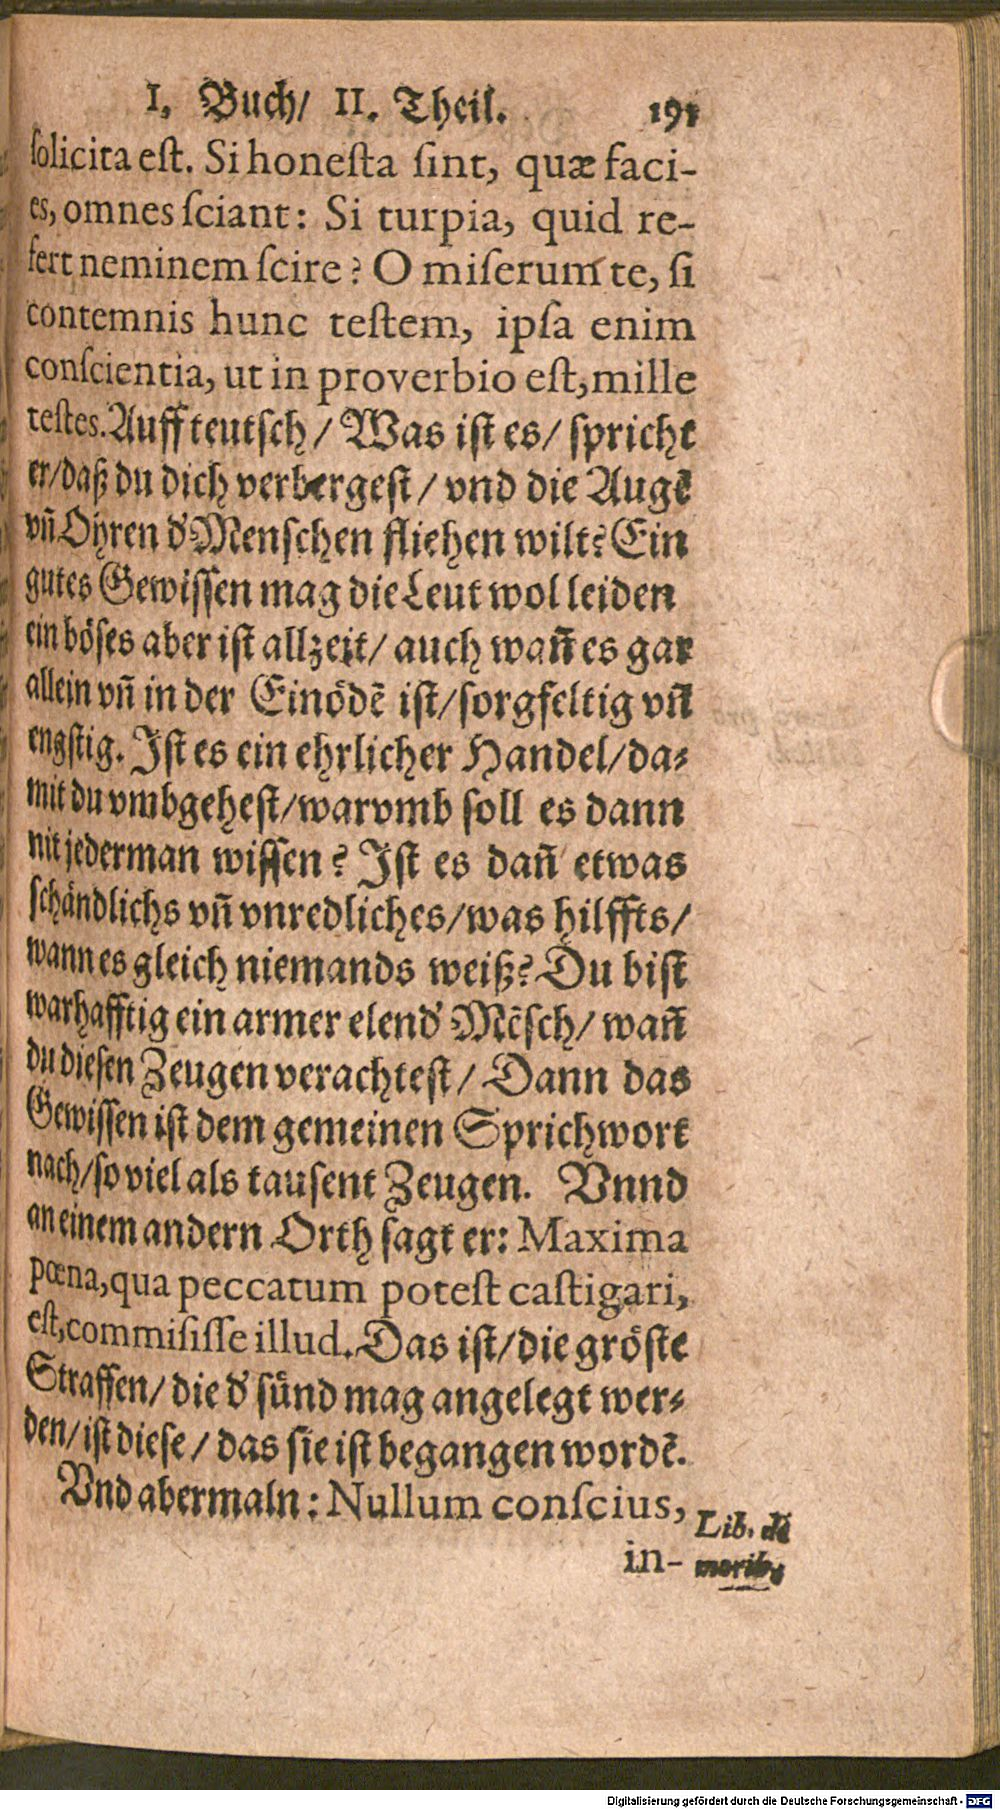 I. Buch/ II. Theil. 191
ſolicita eſt. Si honeſta ſint, quæ faci-
es, omnes ſciant: Si turpia, quid re-
fert neminem ſcire? O miſerum te, ſi
contemnis hunc teſtem, ipſa enim
conſcientia, ut in proverbio eſt, mille
teſtes. Auff teutſch/ Was iſt es/ ſpricht
er/ daß du dich verbergeſt/ vnd die Augẽ
vñ Ohren d' Menſchen fliehen wilt? Ein
gutes Gewiſſen mag die Leut wol leiden
ein böſes aber iſt allzeit/ auch wañ es gar
allein vñ in der Einödẽ iſt/ ſorgfeltig vñ
engſtig. Iſt es ein ehrlicher Handel/ da-
mit du vmbgeheſt/ warvmb ſoll es dann
nit jederman wiſſen? Iſt es dañ etwas
ſchändlichs vñ vnredliches/ was hilffts/
wann es gleich niemands weiß? Du biſt
warhafftig ein armer elend' Mẽſch/ wañ
du dieſen Zeugen verachteſt/ Dann das
Gewiſſen iſt dem gemeinen Sprichwort
nach/ ſo viel als tauſent Zeugen. Vnnd
an einem andern Orth ſagt er: Maxima
pœna, qua peccatum poteſt caſtigari,
eſt, commiſiſſe illud. Das iſt/ die gröſte
Straffen/ die d' ſünd mag angelegt wer-
den/ iſt dieſe/ das ſie iſt begangen wordẽ.
Vnd abermaln: Nullum conſcius,
Lib. de
in-
moribꝰ
Digitalisierung gefördert durch die Deutsche Forschungsgemeinschaft - DFG